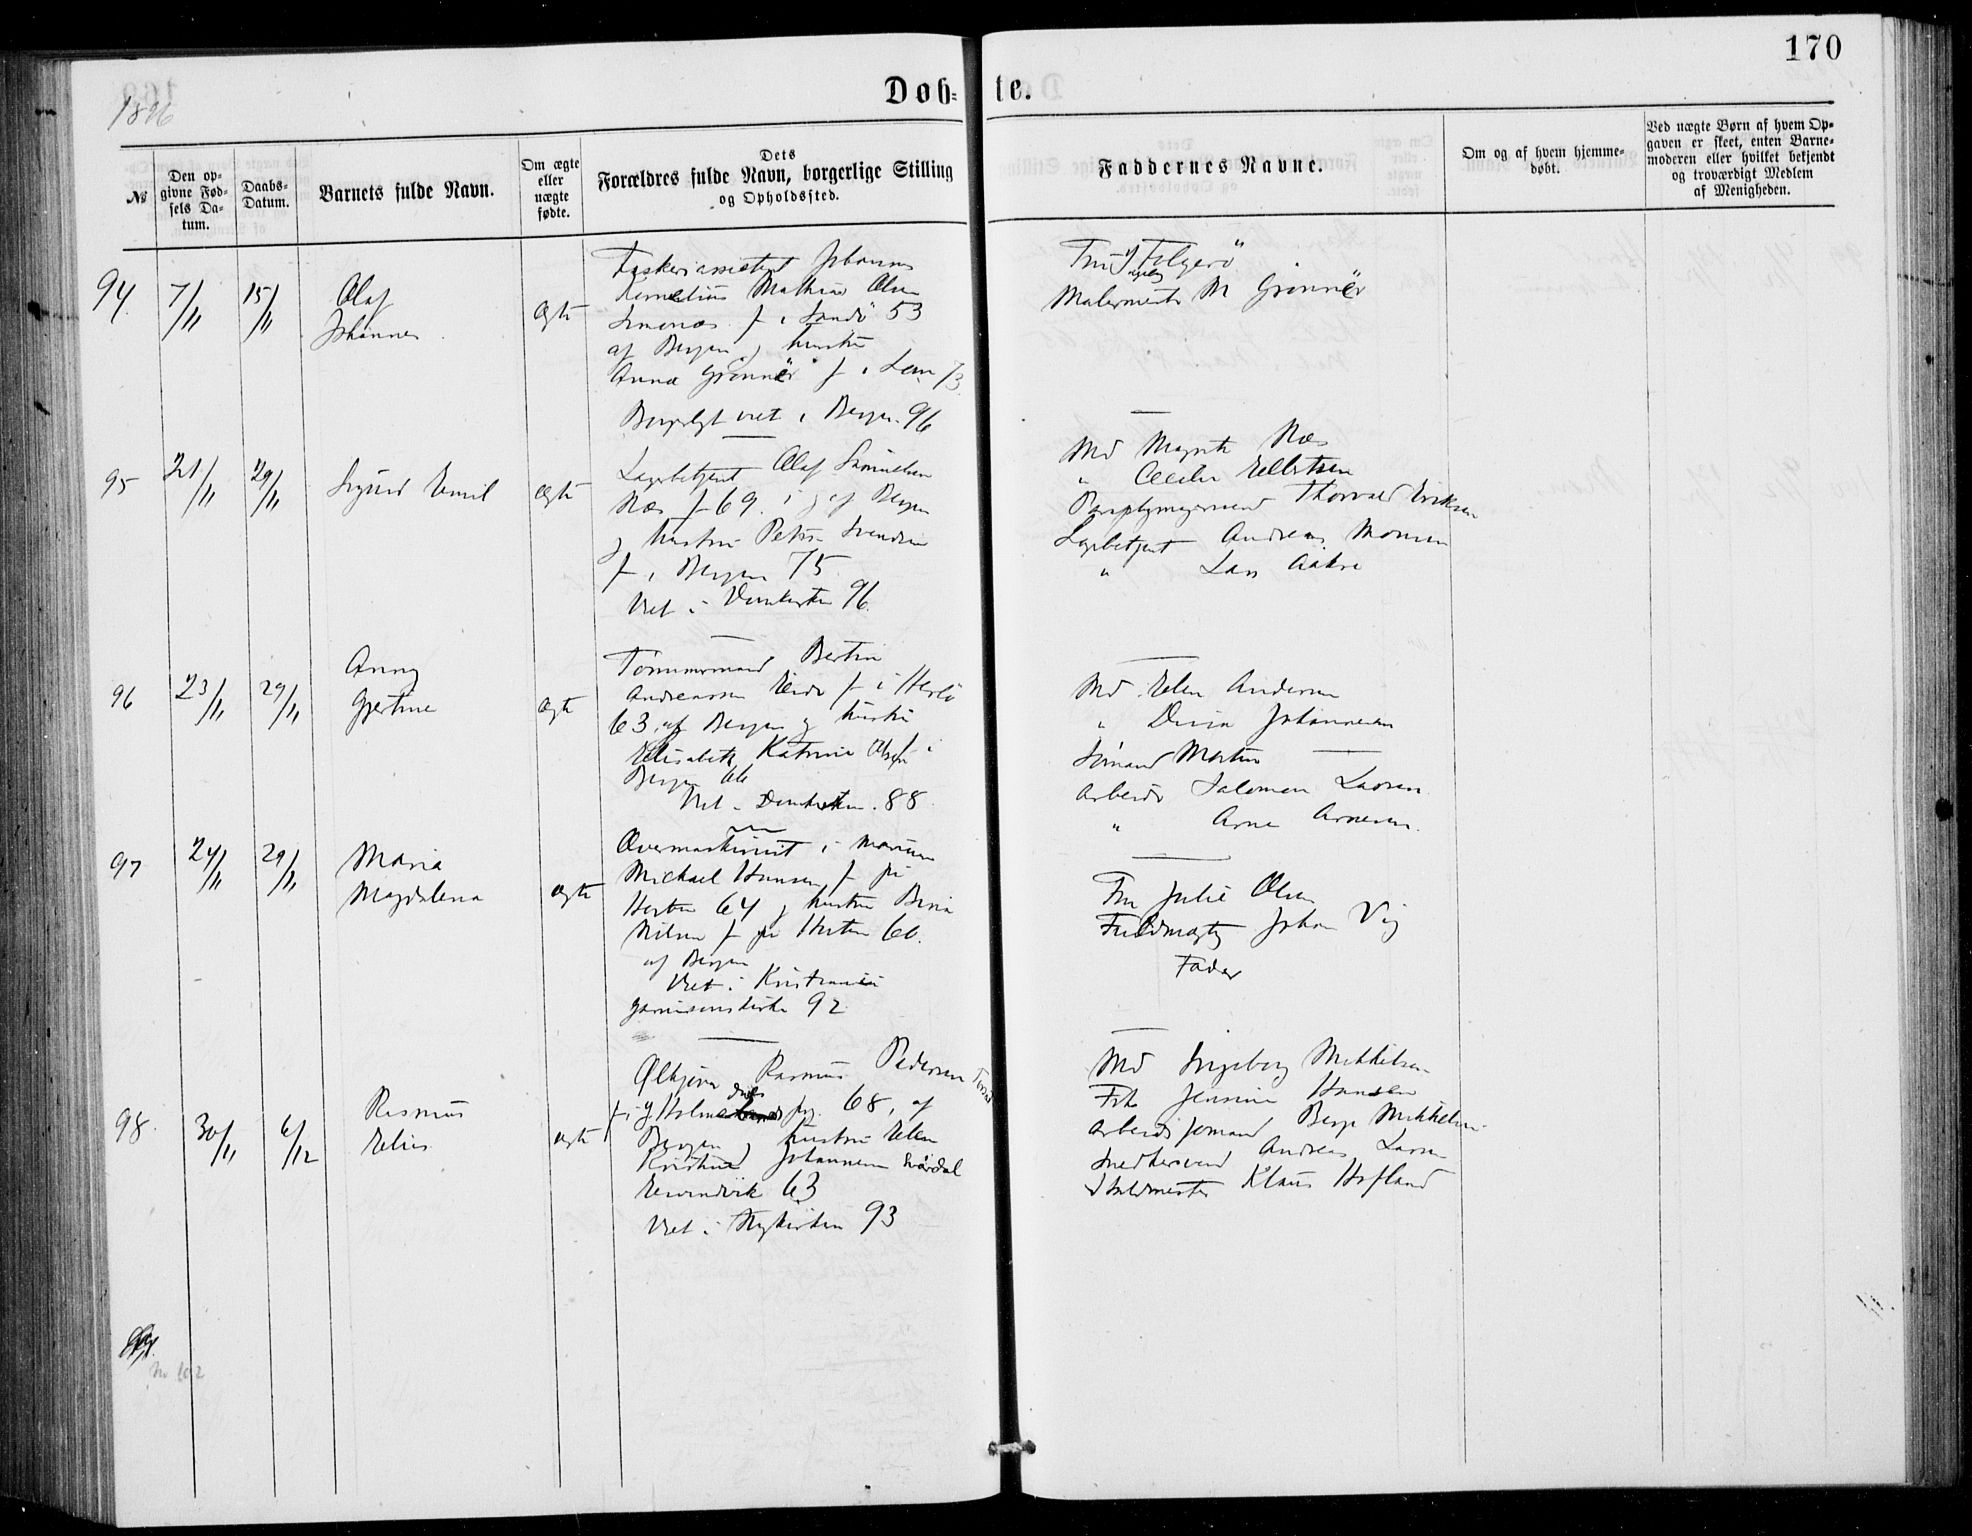 170
1896
Døb-
te.
№
Den op-
givne Fød-
sels Da-
tum.
Daabs-
Datum.
Barnets fulde Navn.
Om ægte
eller
uægte
fødte.
Dets
Forældres fulde Navn, borgerlige Stilling
og Opholdssted.
Faddernes Navne.
Om og af hvem hjemme-
døbt.
Ved uægte Børn af hvem Op-
gaven er skeet, enten Barne-
moderen eller hvilket bekjendt
og troværdigt Medlem
af Menigheden.
94.
7/11
15/11
Olaf
Johannes
Ægte
Johannes
Kornelius Mathias Olsen
f i Sandö 53
af Bergen og hustru
Anna Grönnér f i 73
Borgerligt viet i Bergen 96
Malermester M Grönnér
95
21/11
29/11
Sigurd Emil
Ægte
Lagerbetjent Olaf Samuelsen
Næs f 69. i og af Bergen
og hustru Petra Svendsen
f i Bergen 75
Viet i Domkirken 96.
Md Næs
" Cecilie Ellertsen
Thorvald Eriksen
Lagerbetjent Andreas Monsen
" Lars Aakre
96
23/11
29/11
Anny
Gjertine
Ægte
Tømmermand Bertin
Andreassen Eide f i Herlö
63 af Bergen og hustru
Elisabeth Katrine Olsen f i
Bergen 66
Viet i Domkirken 88
Md Elen Andersen
" Johannesen
Sömand Morten
Arbeider Salomon Larsen
" Arne Arnesen
97
24/11
29/11
Maria
Magdalena
Ægte
Overmaskinist i Marinen
Michael Hansen f på
Horten 64 og hustru
Nilsen f på Horten 66.
af Bergen
Viet i Kristiania
garnisonskirke 92
Fru Julie Olsen
Fuldmægtig Johan Vig
Fader
98.
30/11
6/12
Rasmus
Elias
ægte
Ølkjører Rasmus Pedersen
68, af
Bergen og hustru Elen
Kristine Johannesen
Eivindvik 63
Viet i Nykirken 93
Md Ingeborg Mikkelsen
Frk Jensine Hansen
Arbeidsformand Berge Mikkelsen
Snedkersvend Andreas Larsen
Klaus Hofland
No 102